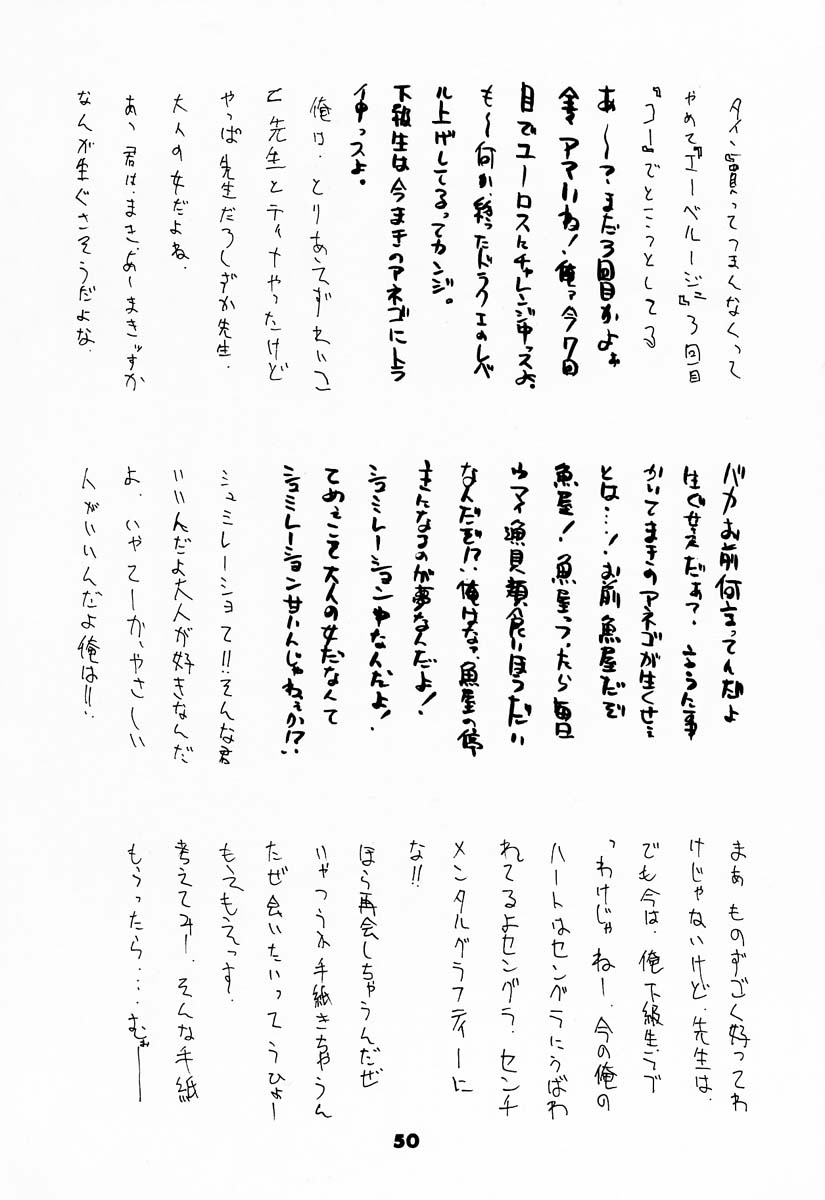 タイン買ってつまんなくって
やめて『エーベルージュ』3回目
『コー』でとこっとしてる
あ〜?まだ3回目かよぉ
金マアマいね!俺ァ今7回
目でユーロストにチャレンジ中っスよ。
も〜何か、終ったドラクエのレベ
ル上げしてるってカンジ。
下級生は今まきのアネゴにトラ
イ中っスよ。
俺は、とりあえずれいこ
先生とティナやったけど
やっぱ先生だろしずか先生。
大人の女だよね。
あ、君は、まき、よ〜まきっすか
なんが生ぐさそうだよな。
バカお前何言ってんだよ
生ぐ せえだぁ?言うに事
かいてまきのアネゴが生くせえ
とは…!お前魚屋だぞ
魚屋!魚屋っつったら毎日
ウマイ漁貝類食いほうだい
なんだぞ!?俺はなァ、魚屋の停
主になるのが夢なんだよ!
シュミレーション中なんだよ!
てめぇこそ大人の女だなんて
シュミレーション甘いんじゃねぇか!?
シュミレーショて!!そんな君
いいんだよ大人が好きなんだ
よ、いやてーか、やさしい
人がいいんだよ俺は!!
まあものすごく好ってわ
けじゃないけど、先生は、
でも今は、俺下級生って
っわけじゃねー、今の俺の
ハートはセングラにうばわ
れてるよセングラ、センチ
メンタルグラフティーに
な!!
ほら再会しちゃうんだぜ
いやつうか手紙きちゃうん
だぜ会いたいってうひょー
もえもえっす。
考えてみー、そんな手紙
もらったら...むぉ――
50